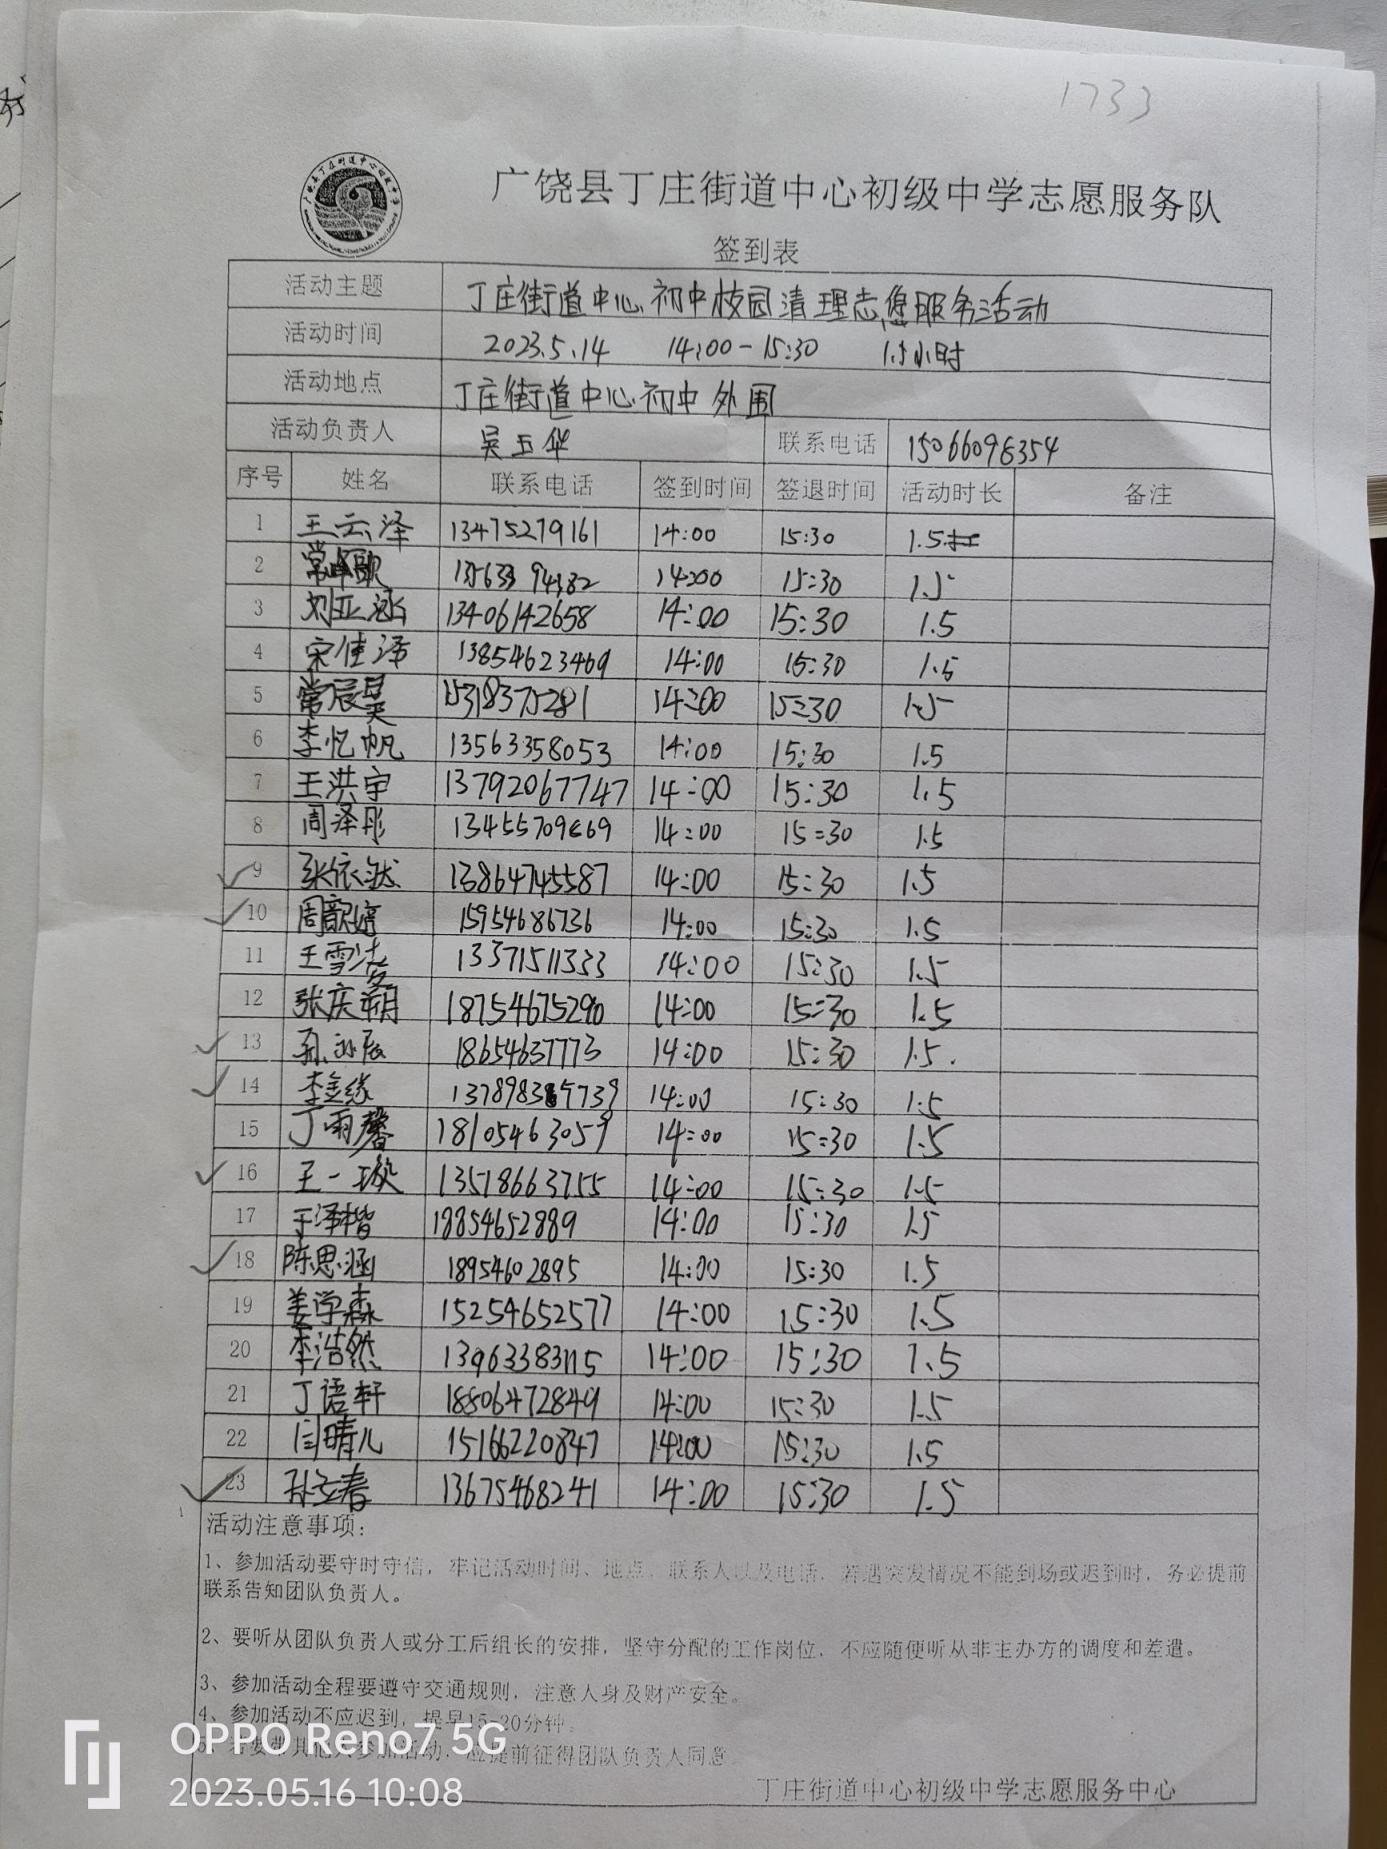 1733
广饶县丁庄街道中心初级中学志愿服务队
签到表
活动主题 丁庄街道中心初中校园清理志愿服务活动
活动时间 2023.5.14 14:00-15:30 1.5小时
活动地点 丁庄街道中心初中外围
活动负责人 吴玉华 联系电话 15066098354
序号 姓名 联系电话 签到时间 签退时间 活动时长 备注
1 王云泽 13475279161 14:00 15:30 1.5
2 14:00 15:30 1.5
3 刘亚涵 13406142658 14:00 15:30 1.5
4 宋佳泽 13854623469 14:00 15:30 1.5
5 常辰昊 15318375281 14:00 15:30 1.5
6 李忆帆 13563358053 14:00 15:30 1.5
7 王洪宇 13792067747 14:00 15:30 1.5
8 周泽彤 13455709669 14:00 15:30 1.5
9 张依然 13864745587 14:00 15:30 1.5
10 周歆婷 15954686736 14:00 15:30 1.5
11 王雪洁 13371511333 14:00 15:30 1.5
12 张庆霸 18754675290 14:00 15:30 1.5
13 18654637773 14:00 15:30 1.5.
14 李金缘 14:00 15:30 1.5
15 丁雨馨 18105463059 14:00 15:30 1.5
16 王一璇 13518663755 14:00 15:30 1.5
17 于泽楷 18854652889 14:00 15:30 1.5
18 陈思涵 18954602895 14:00 15:30 1.5
19 姜学森 15254652577 14:00 15:30 1.5
20 李浩然 13963383115 14:00 15:30 1.5
21 丁语轩 18806472849 14:00 15:30 1.5
22 闫晴儿 15166220847 14:00 15:30 1.5
23 孙立春 13675468241 14:00 15:30 1.5
活动注意事项:
1、参加活动要守时守信，牢记活动时间、地点、联系人以及电话，若遇突发情况不能到场或迟到时，务必提前
联系告知团队负责人。
2、要听从团队负责人或分工后组长的安排，坚守分配的工作岗位，不应随便听从非主办方的调度和差遣。
3、参加活动全程要遵守交通规则，注意人身及财产安全。
4、参加活动不应迟到，提早15-20分钟。
5、若要带其他人参加活动，应提前征得团队负责人同意
丁庄街道中心初级中学志愿服务中心
OPPO Reno7 5G
2023.05.16 10:08